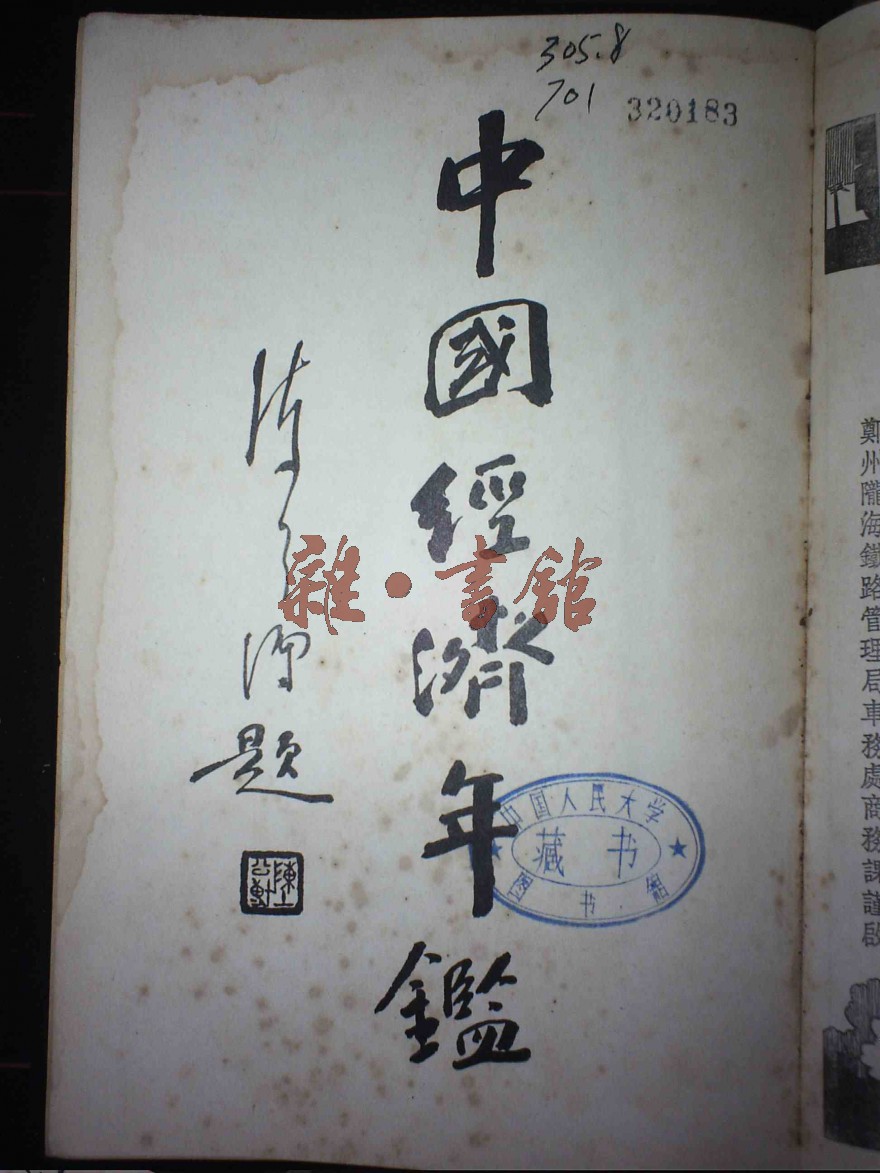 305.8
701
320183
鄭州隴海鐵路管理局車務處商務課謹啟
中國經濟年鑑
陳公博題
雜·書館
中国人民大学
藏书
图书馆